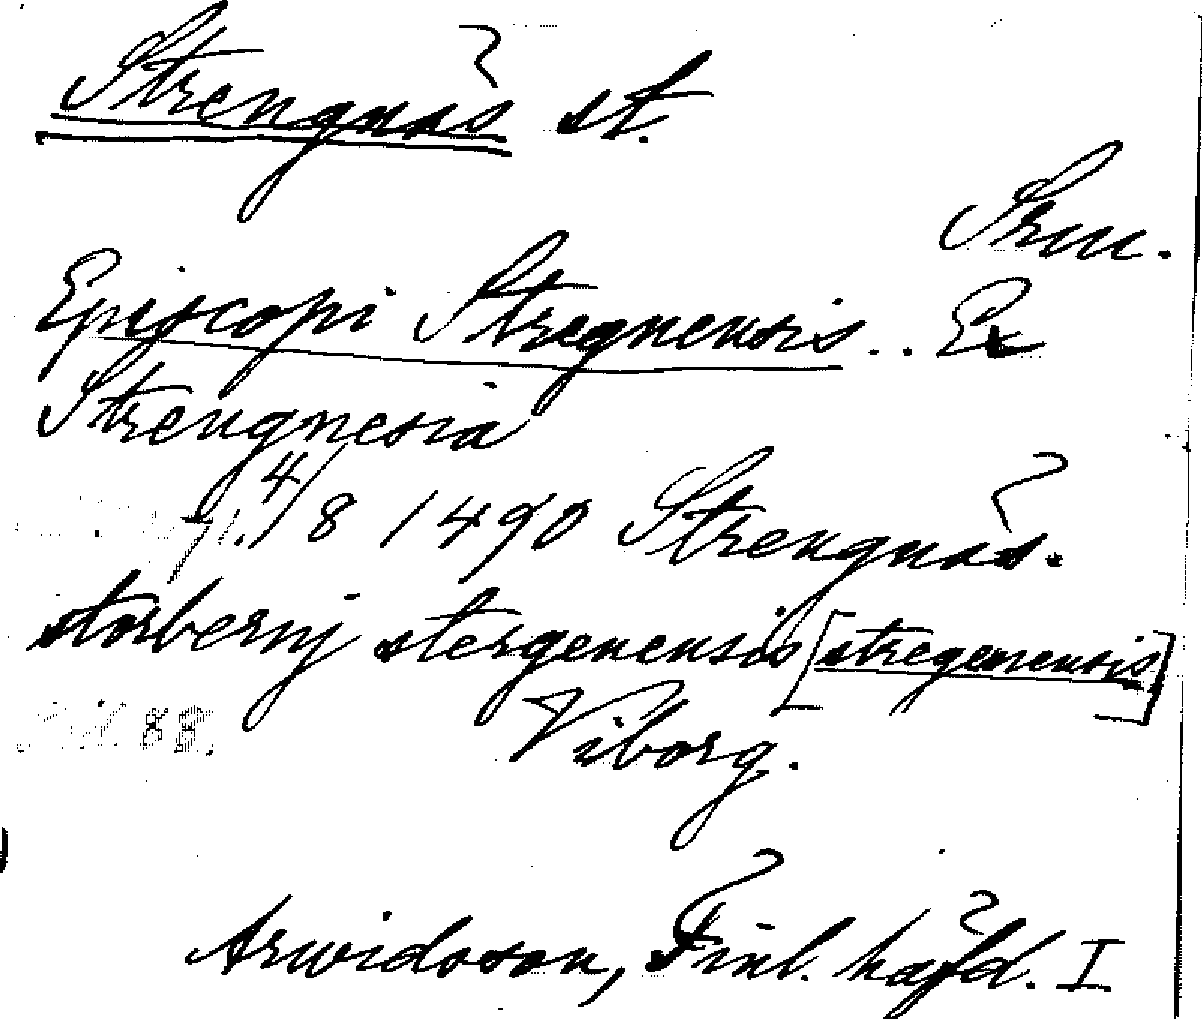 Strengnäs st.
Srm.
Episcopi Stregnensis.. Ex
Strengnesia
4/8 1490 Strengnäs.
storbernj stergenensis [stregenensis]
Viborg.
88.
Arwidsson, Finl. häfd. I